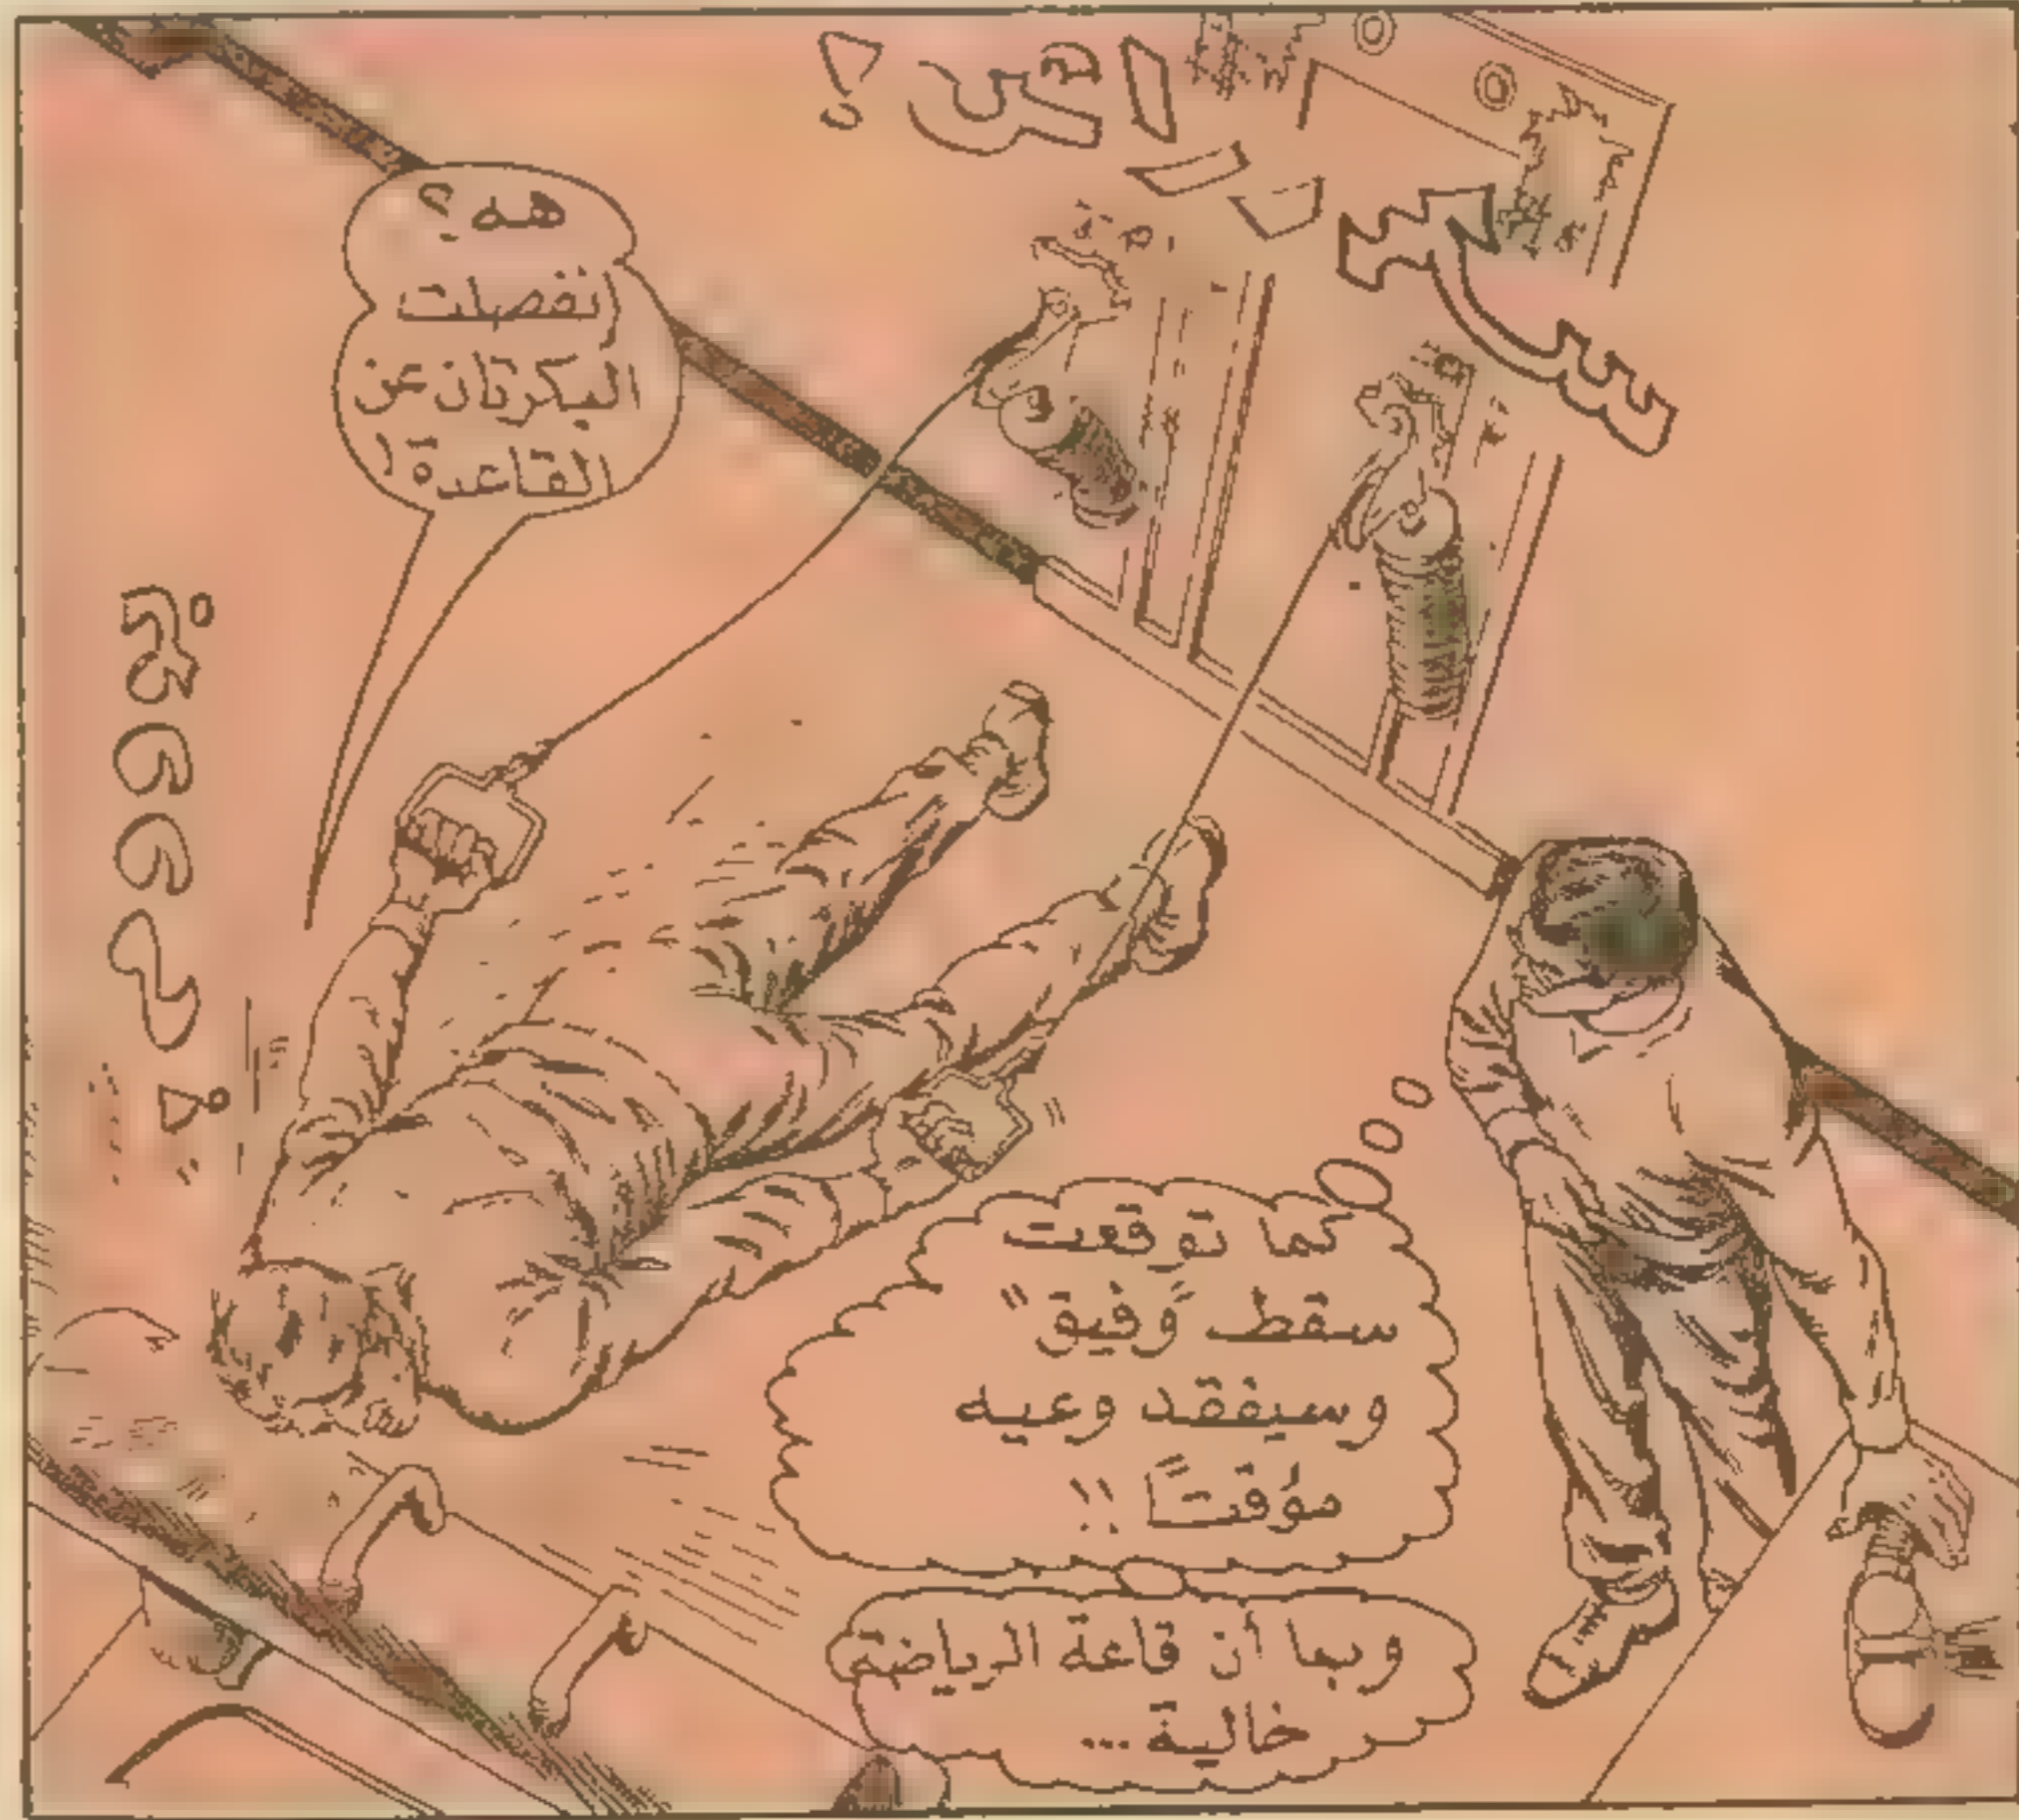 هه؟
إنفصلت
البكرتان عن
القاعدة!
كما توقعت
سقط "وفيق"
وسيفقد وعيه
مؤقتاً !!
وبما أن قاعة الرياضة
خالية ...